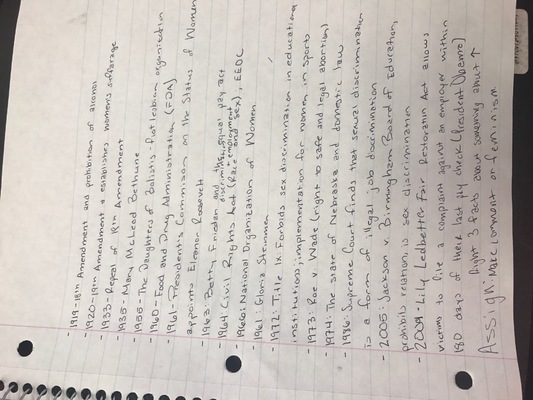 - 1919-18th Amendment and prohibition of alcohol
- 1920-19th Amendment & establishes women's suffarage
- 1933- Repeal of 18th Amendment
- 1935- Mary McLeod Bethune
- 1955-The Daughters of Balistis - first lesbian organization
- 1960- Food and Drug Administration (FDA)
- 1961- President's Commision on the Status of Women
appoints Eleanor Roosevelt
- 1963- Betty Frieden and equal pay act
- 1964 Civil Rights Act (Race and sex), EEOC
discrimination, + employment
- 1966: National Organization of Women
- 1961: Gloria
- 1972- Title IX Forbids sex discrimination in educationa
institutions; implementation for women in sports
- 1973: Roe v. Wade (right to safe and legal abortion)
- 1974: The state of Nebraska and domestic law
- 1986: Supreme Court finds that sexual discrimination
is a form of illegal job discrimination
- 2005: Jackson v. Birmingham Board of Education,
prohibits relation, is sex discrimination
- 2009- Lily Ledbetter Fair Restoration Act allows
victims to file a complaint against an employer within
180 days of there last pay check (President Obama)
3 facts about somebody about ↑
Assign: Make comment on feminism